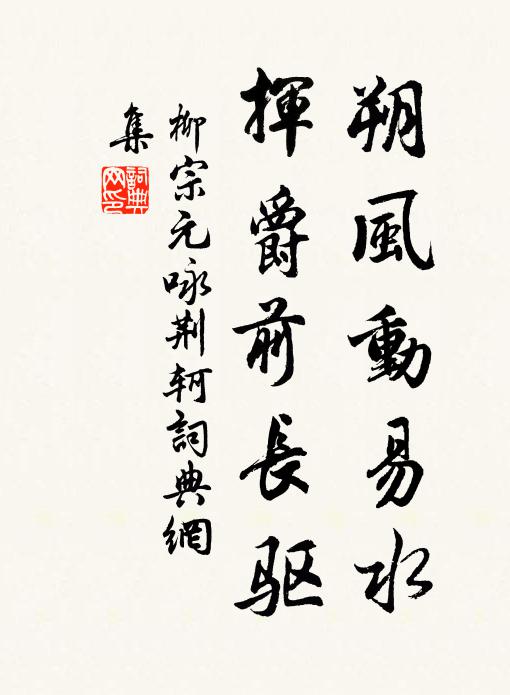 朔風動易水
揮爵前長驱
柳宗元咏荆轲詞典網
集
詞典
网印